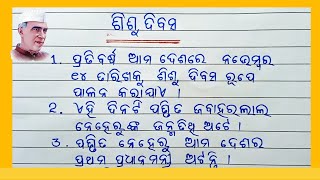 ଶିଶୁ ଦିବସ
1. ପ୍ରତିବର୍ଷ ଆମ ଦେଶରେ ନଭେମ୍ବର
୧୪ ତାରିଖକୁ ଶିଶୁ ଦିବସ ରୂପେ
ପାଳନ କରାଯାଏ ।
2. ଏହି ଦିନଟି ପଣ୍ଡିତ ଜବାହରଲାଲ
ନେହେରୁଙ୍କ ଜନ୍ମତିଥି ଅଟେ ।
3. ପଣ୍ଡିତ ନେହେରୁ ଆମ ଦେଶର
ପ୍ରଥମ ପ୍ରଧାନମନ୍ତ୍ରୀ ଅଟନ୍ତି ।